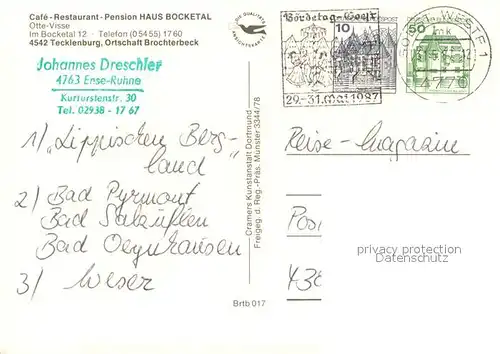 Café-Restaurant-Pension HAUS BOCKETAL
Otte-Visse
Im Bocketal 12 · Telefon (0 54 55) 17 60
4542 Tecklenburg, Ortschaft Brochterbeck
Johannes Dreschler
4763 Ense-Ruhne
Kurfürstenstr. 30
Tel. 02938 - 17 67
1) "Lippisches Berg-
land"
2) Bad Pyrmont
Bad Salzuflen
Bad Oeynhausen
3) Weser
DIE QUALITÄTS
ANSICHTSKARTE
Cramers Kunstanstalt Dortmund
Freigeg. d. Reg.-Präs. Münster 3344/78
Brtb 017
Bördetag-Soest
29.-31. Mai 1987
10
50
WESTF 1
4770
Reise-Magazin
Pos
438
privacy protection
Datenschutz